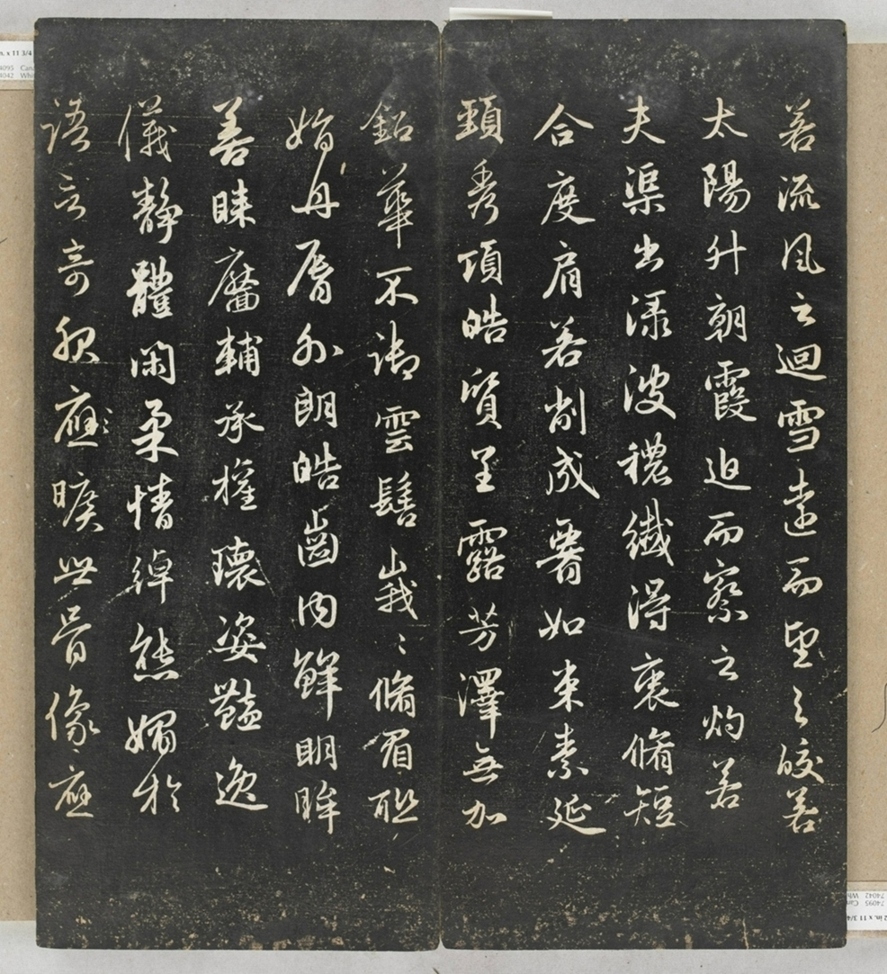 若流風之迴雪遠而望之皎若
太陽升朝霞迫而察之灼若
夫渠出淥波穠纖得衷脩短
合度肩若削成腰如束素延
頸秀項皓質呈露芳澤無加
鉛華不御雲髻峩〻脩眉聯
娟丹脣外朗皓齒内鮮明眸
善睞靨輔承權瓌姿豔逸
儀靜體閑柔情綽態媚於
語言奇服應曠世骨像應